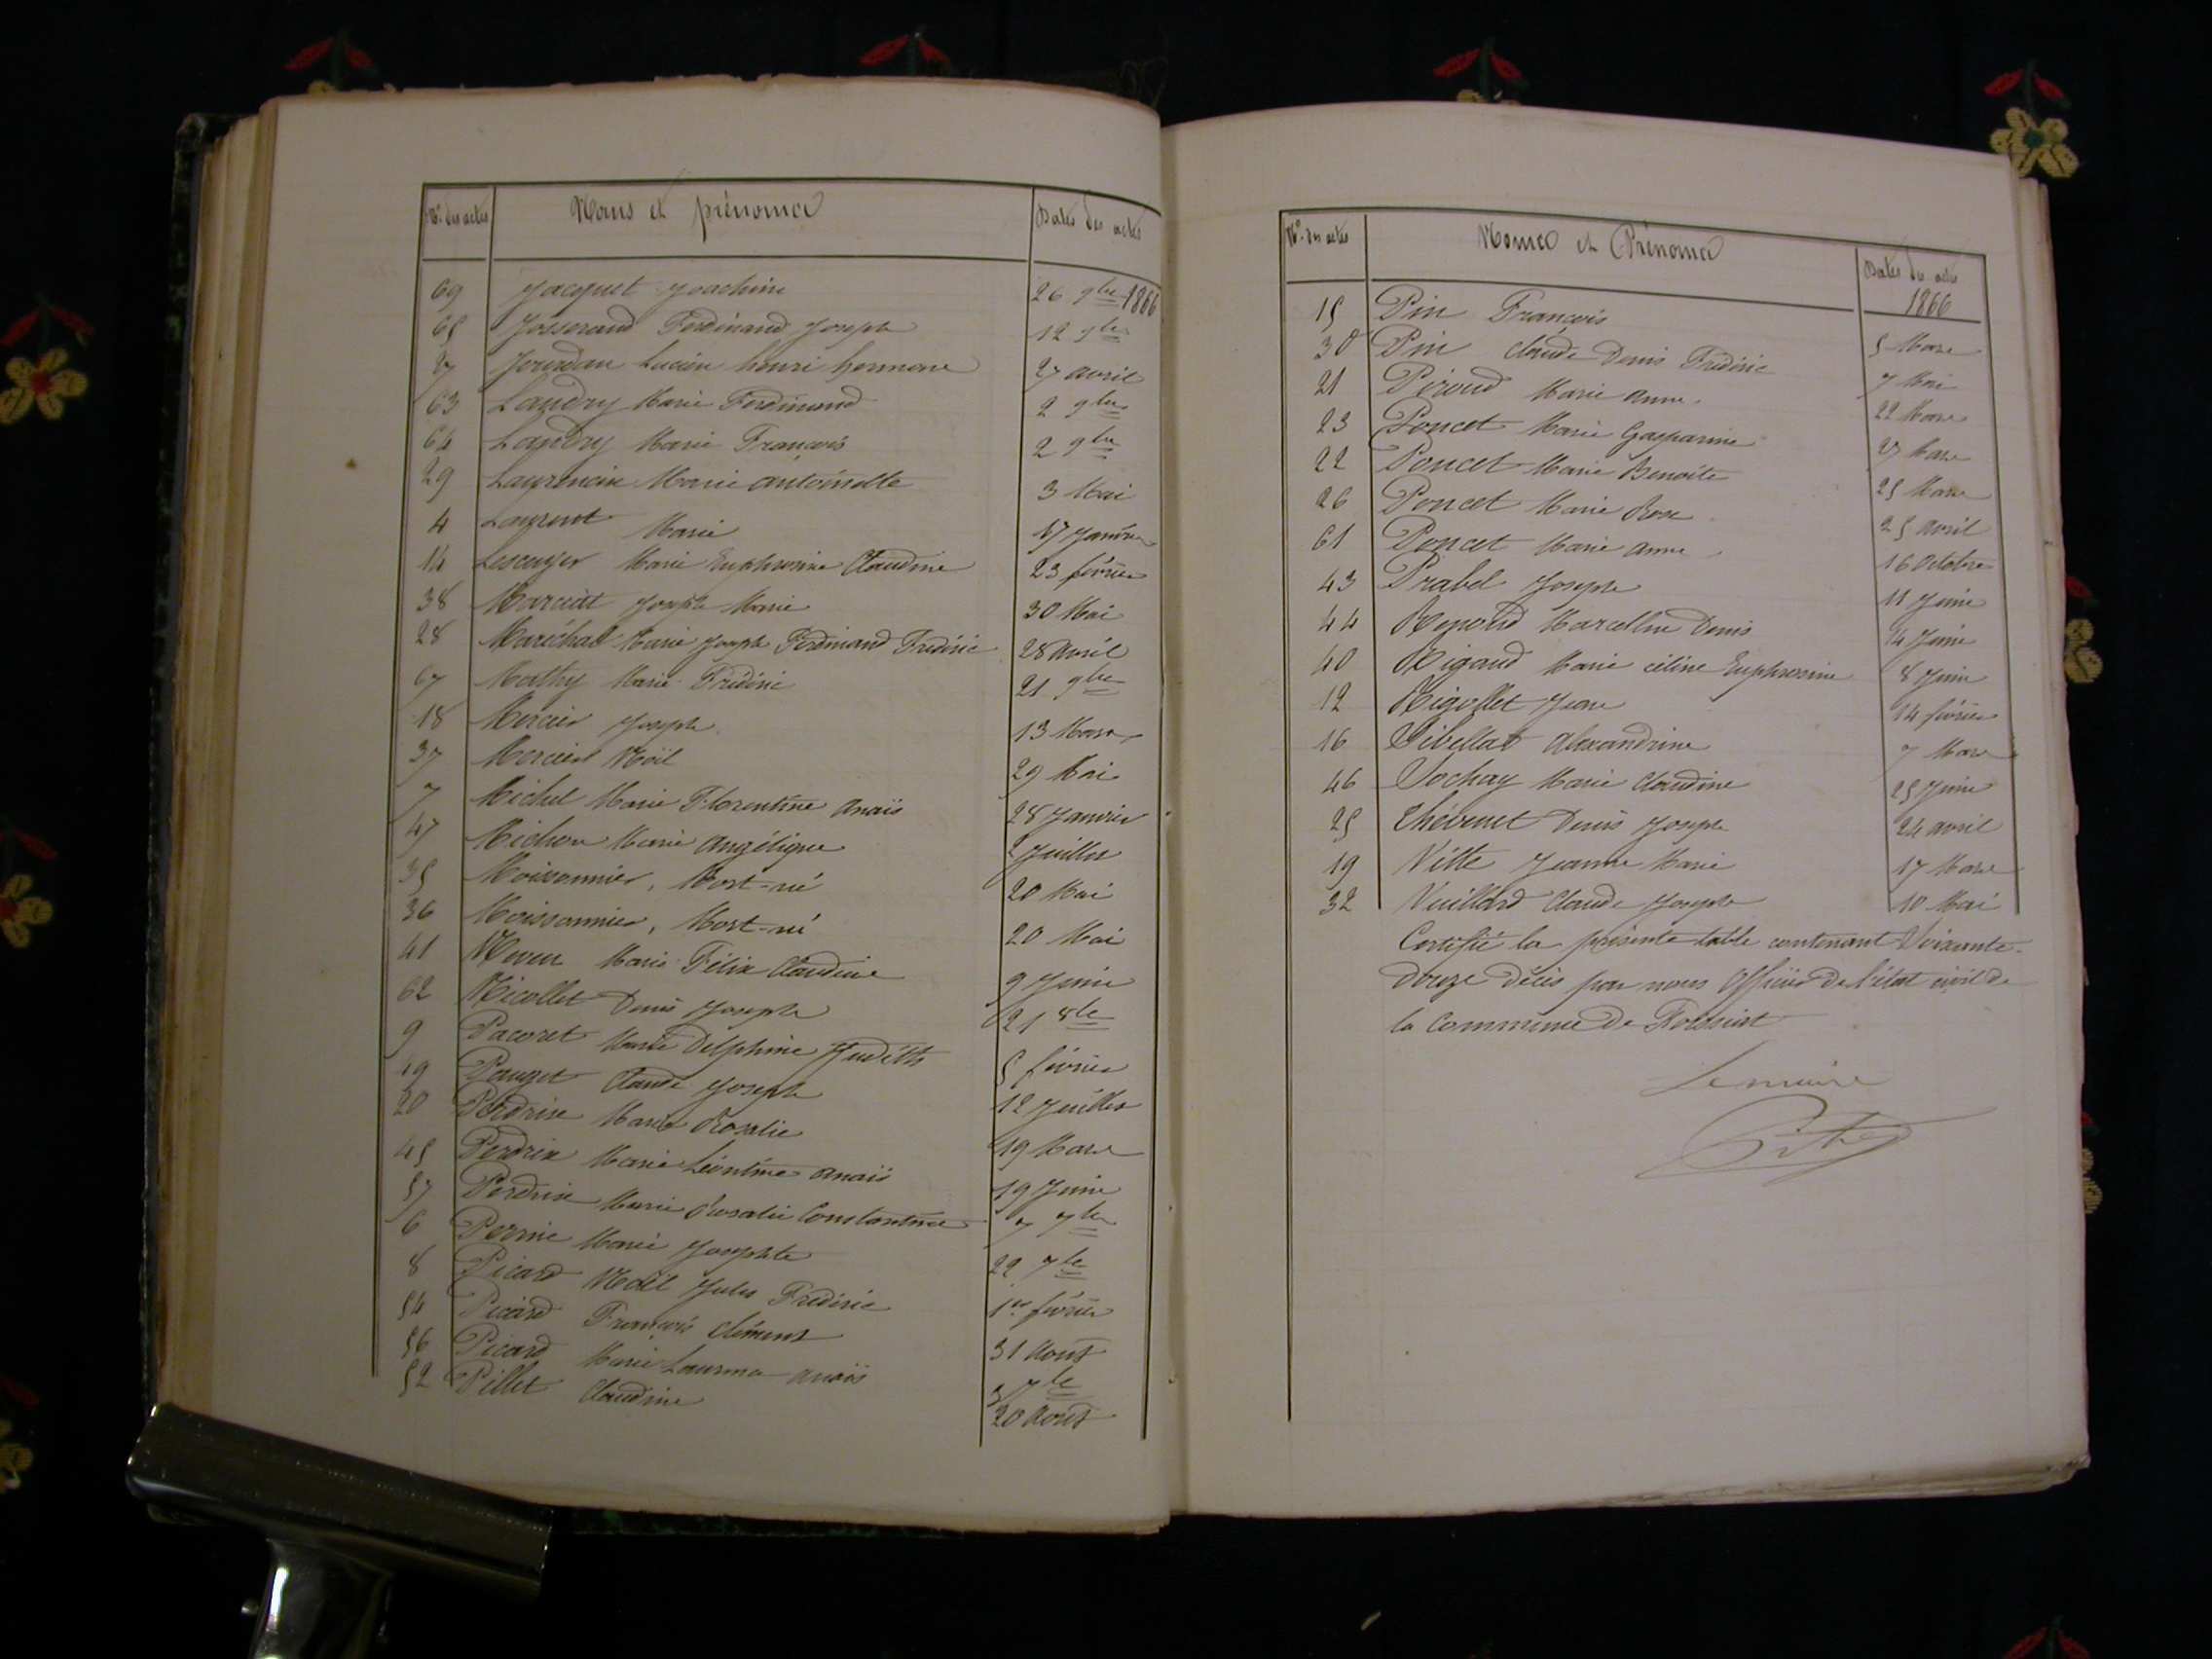 Nos des actes Noms et prénoms Dates des actes
69 Jacquet Joachim 26 9bre 1866
65 Josserand Ferdinand Joseph 12 9bre
27 Jourdan Lucien henri hermane 27 avril
63 Landry Marie Ferdinand 2 9bre
64 Landry Marie François 2 9bre
29 Laurencin Marie antoinette 3 Mai
4 Laurent Marie 17 Janvier
14 Lescuyer Marie Euphrosine Claudine 23 février
38 Joseph Marie 30 Mai
28 Maréchal Marie Joseph Ferdinand Frédéric 28 avril
67 Mathy Marie Frédéric 21 9bre
18 Mercier Joseph 13 Mars
37 Mercier Noël 29 Mai
7 Michel Marie Florentine anaïs 28 Janvier
47 Michon Marie angélique 2 Juillet
35 Moissonnier, Mort-né 20 Mai
36 Moissonnier, Mort-né 20 Mai
41 Marie Félix Claudine 9 Juin
62 Nicollet Denis Joseph 21 8bre
9 Pacoret Marie Delphine Judith 5 février
49 Pauget Claude Joseph 12 Juillet
20 Perdrix Marie Rosalie 19 Mars
45 Perdrix Marie Léontine anaïs 19 Juin
57 Perdrix Marie Rosalie Constantine 7 7bre
6 Perrin Marie Josephte 22 7bre
8 Picard Noël Jules Frédéric 1er février
54 Picard François Clément 31 Aout
56 Picard Marie anaïs 3 7bre
52 Pillet Claudine 20 Aout
No des actes Noms et Prénoms Dates des actes
1866
15 Pin François 5 Mars
30 Pin Claude Denis Frédéric 7 Mai
21 Piroud Marie anne 22 Mars
23 Poncet Marie Gasparine 27 Mars
22 Poncet Marie Benoite 25 Mars
26 Poncet Marie Rose 25 avril
61 Poncet Marie anne 16 Octobre
43 Prabel Joseph 11 Juin
44 Renoud Marcellin Denis 14 Juin
40 Rigaud Marie céline Euphrosine 8 Juin
12 Rigollet Jean 14 février
16 Sibellas alexandrine 7 Mars
46 Sochay Marie Claudine 25 Juin
25 Thévenet Denis Joseph 24 avril
19 Vitte Jeanne Marie 17 Mars
32 Vuillard Claude Joseph 10 Mai
Certifié la présente table contenant Soixante-
douze décès par nous Officier de l'état civil de
la Commune de
Le maire